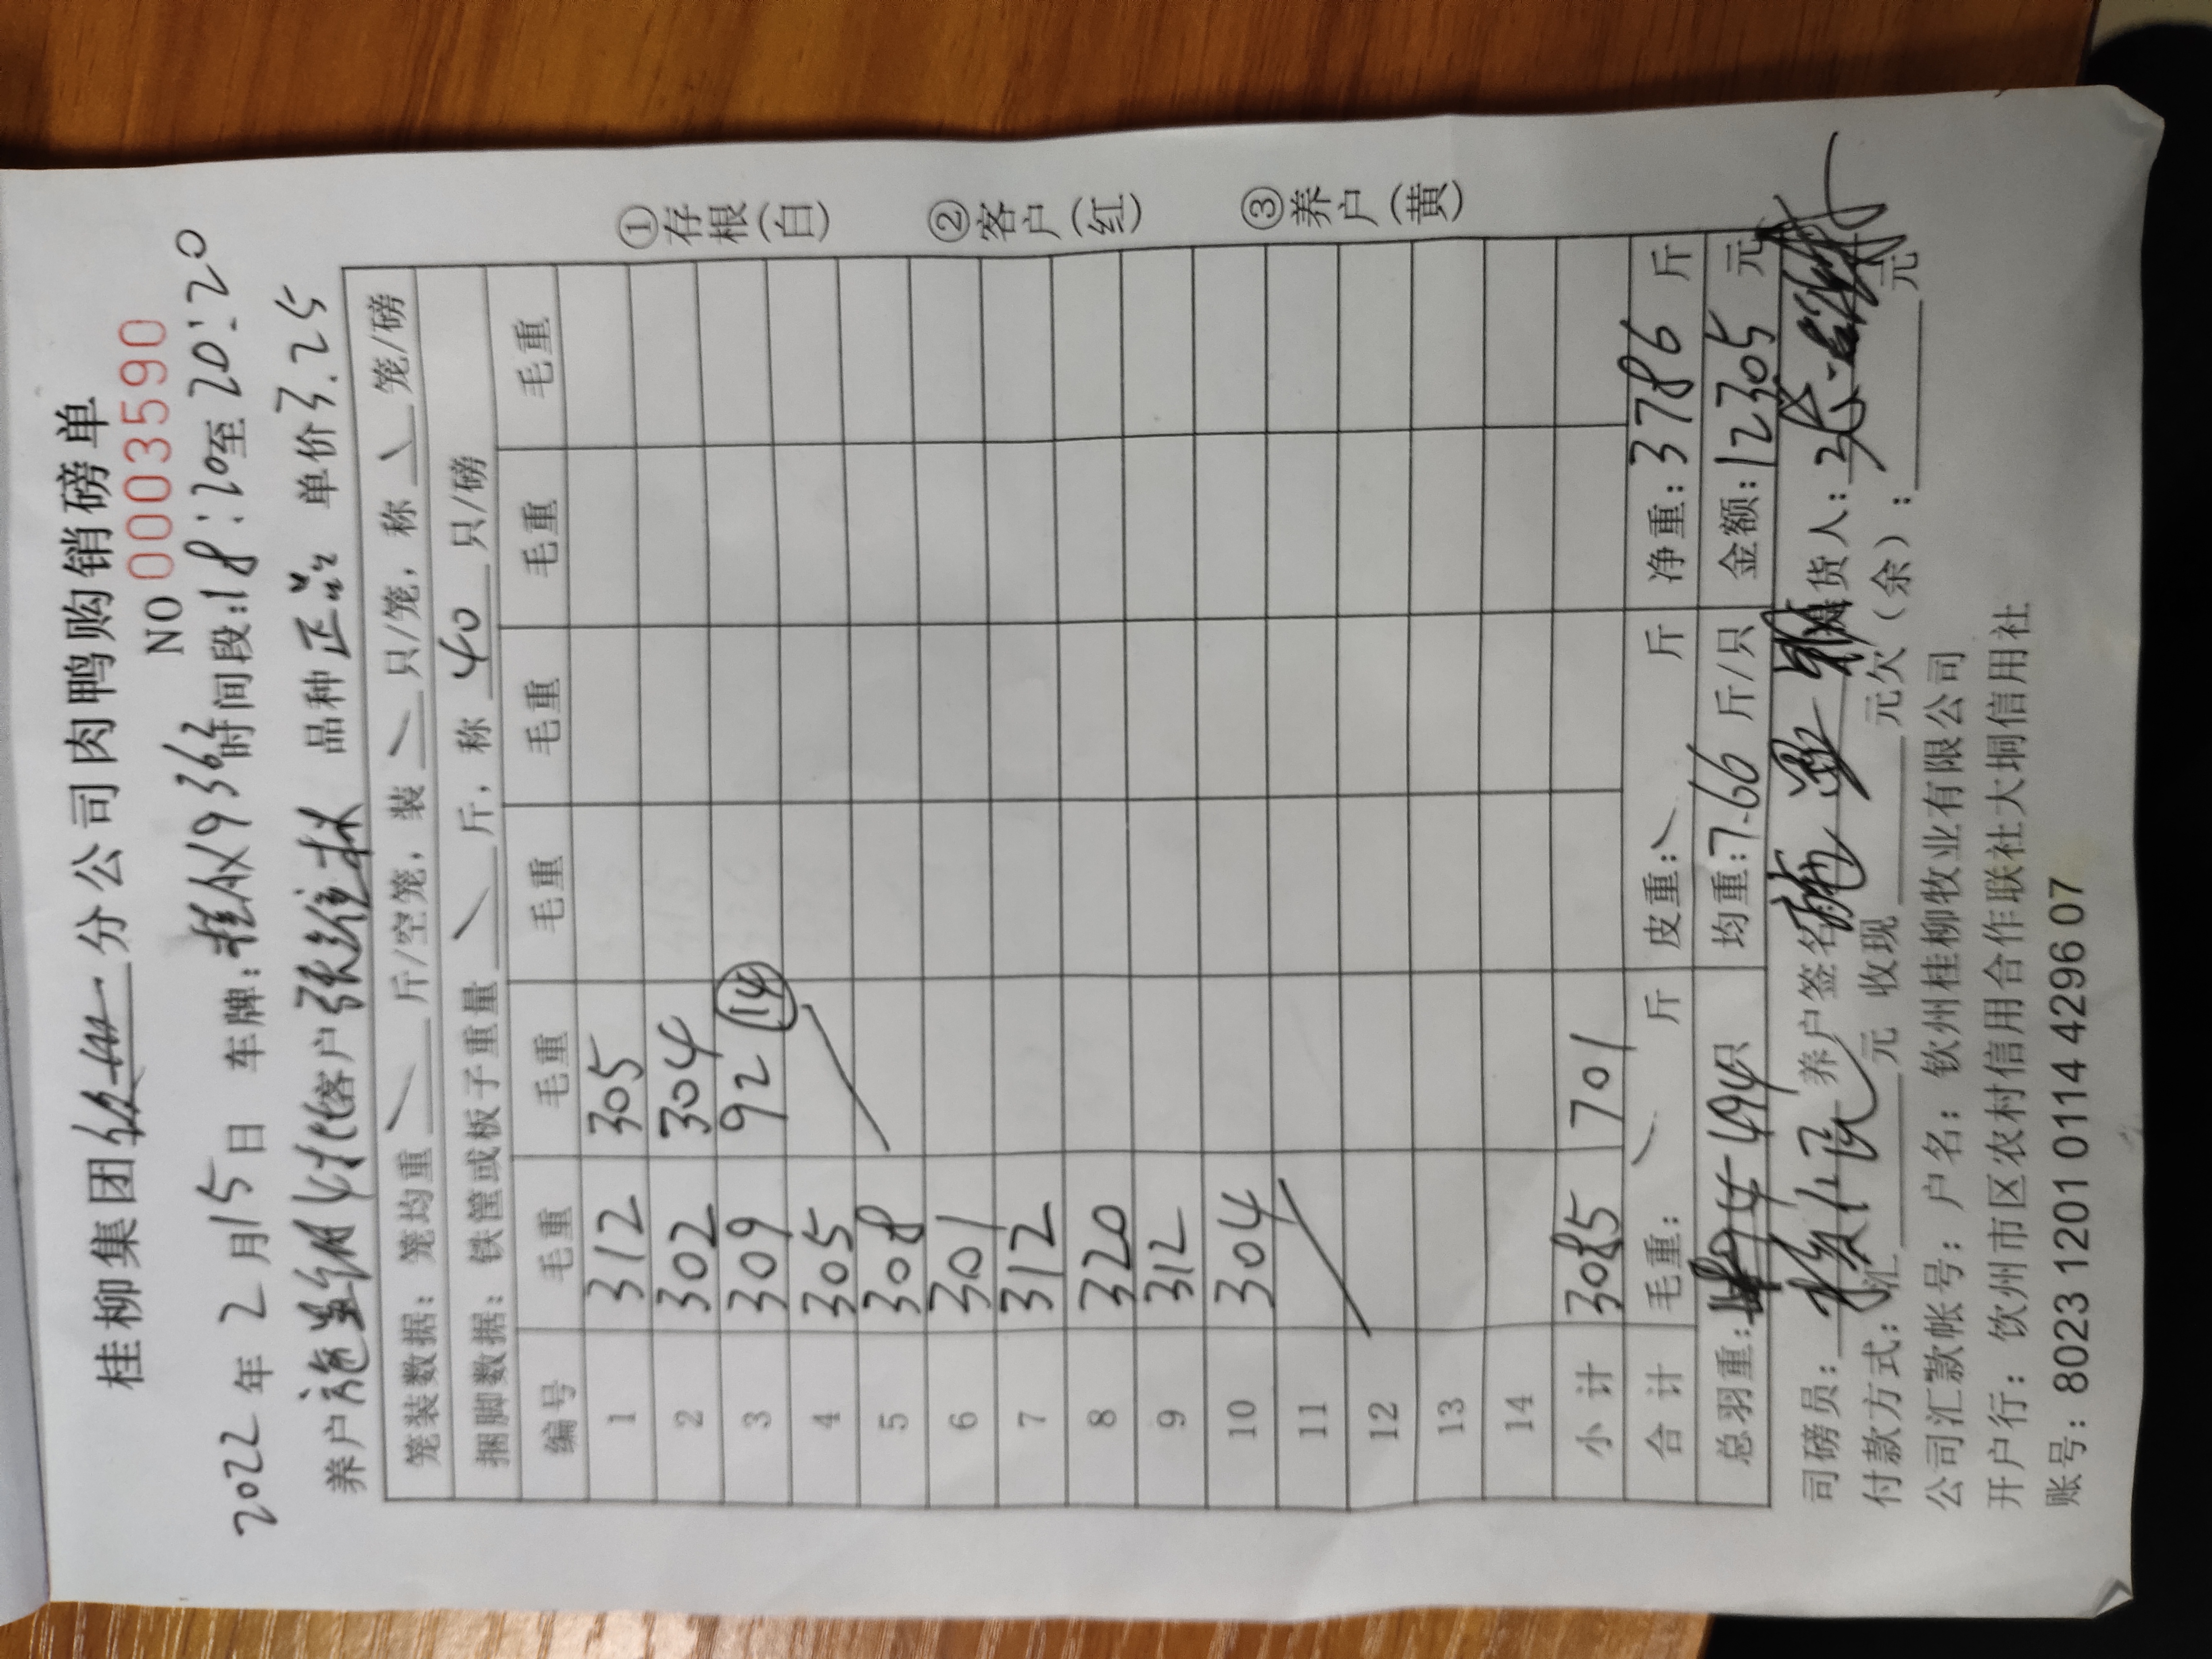 桂柳集团 分公司肉鸭购销磅单
NO 0003590
2022年2月15日 车牌: 9362 时间段:18:20至20:20
养户 客户 张继林 品种正品 单价3.25
笼装数据:笼均重 斤/空笼,装 只/笼,称 笼/磅
捆脚数据:铁筐或板子重量 斤,称 40 只/磅
编号 毛重 毛重 毛重 毛重 毛重 毛重
1 312 305
2 302 304
3 309 92 (14)
4 305
5 308
6 301
7 312
8 320
9 312
10 304
11
12
13
14
小计 3085 701
合计 毛重: 斤 皮重: 斤 净重:3786 斤
总羽重: 494只 均重:7.66 斤/只 金额:12305 元
①存根(白) ②客户(红) ③养户(黄)
司磅员: 养户签名 货人:
付款方式:汇 元 收现 元欠(余): 元
公司汇款帐号:户名:钦州桂柳牧业有限公司
开户行:钦州市区农村信用合作联社大垌信用社
账号:8023 1201 0114 4296 07